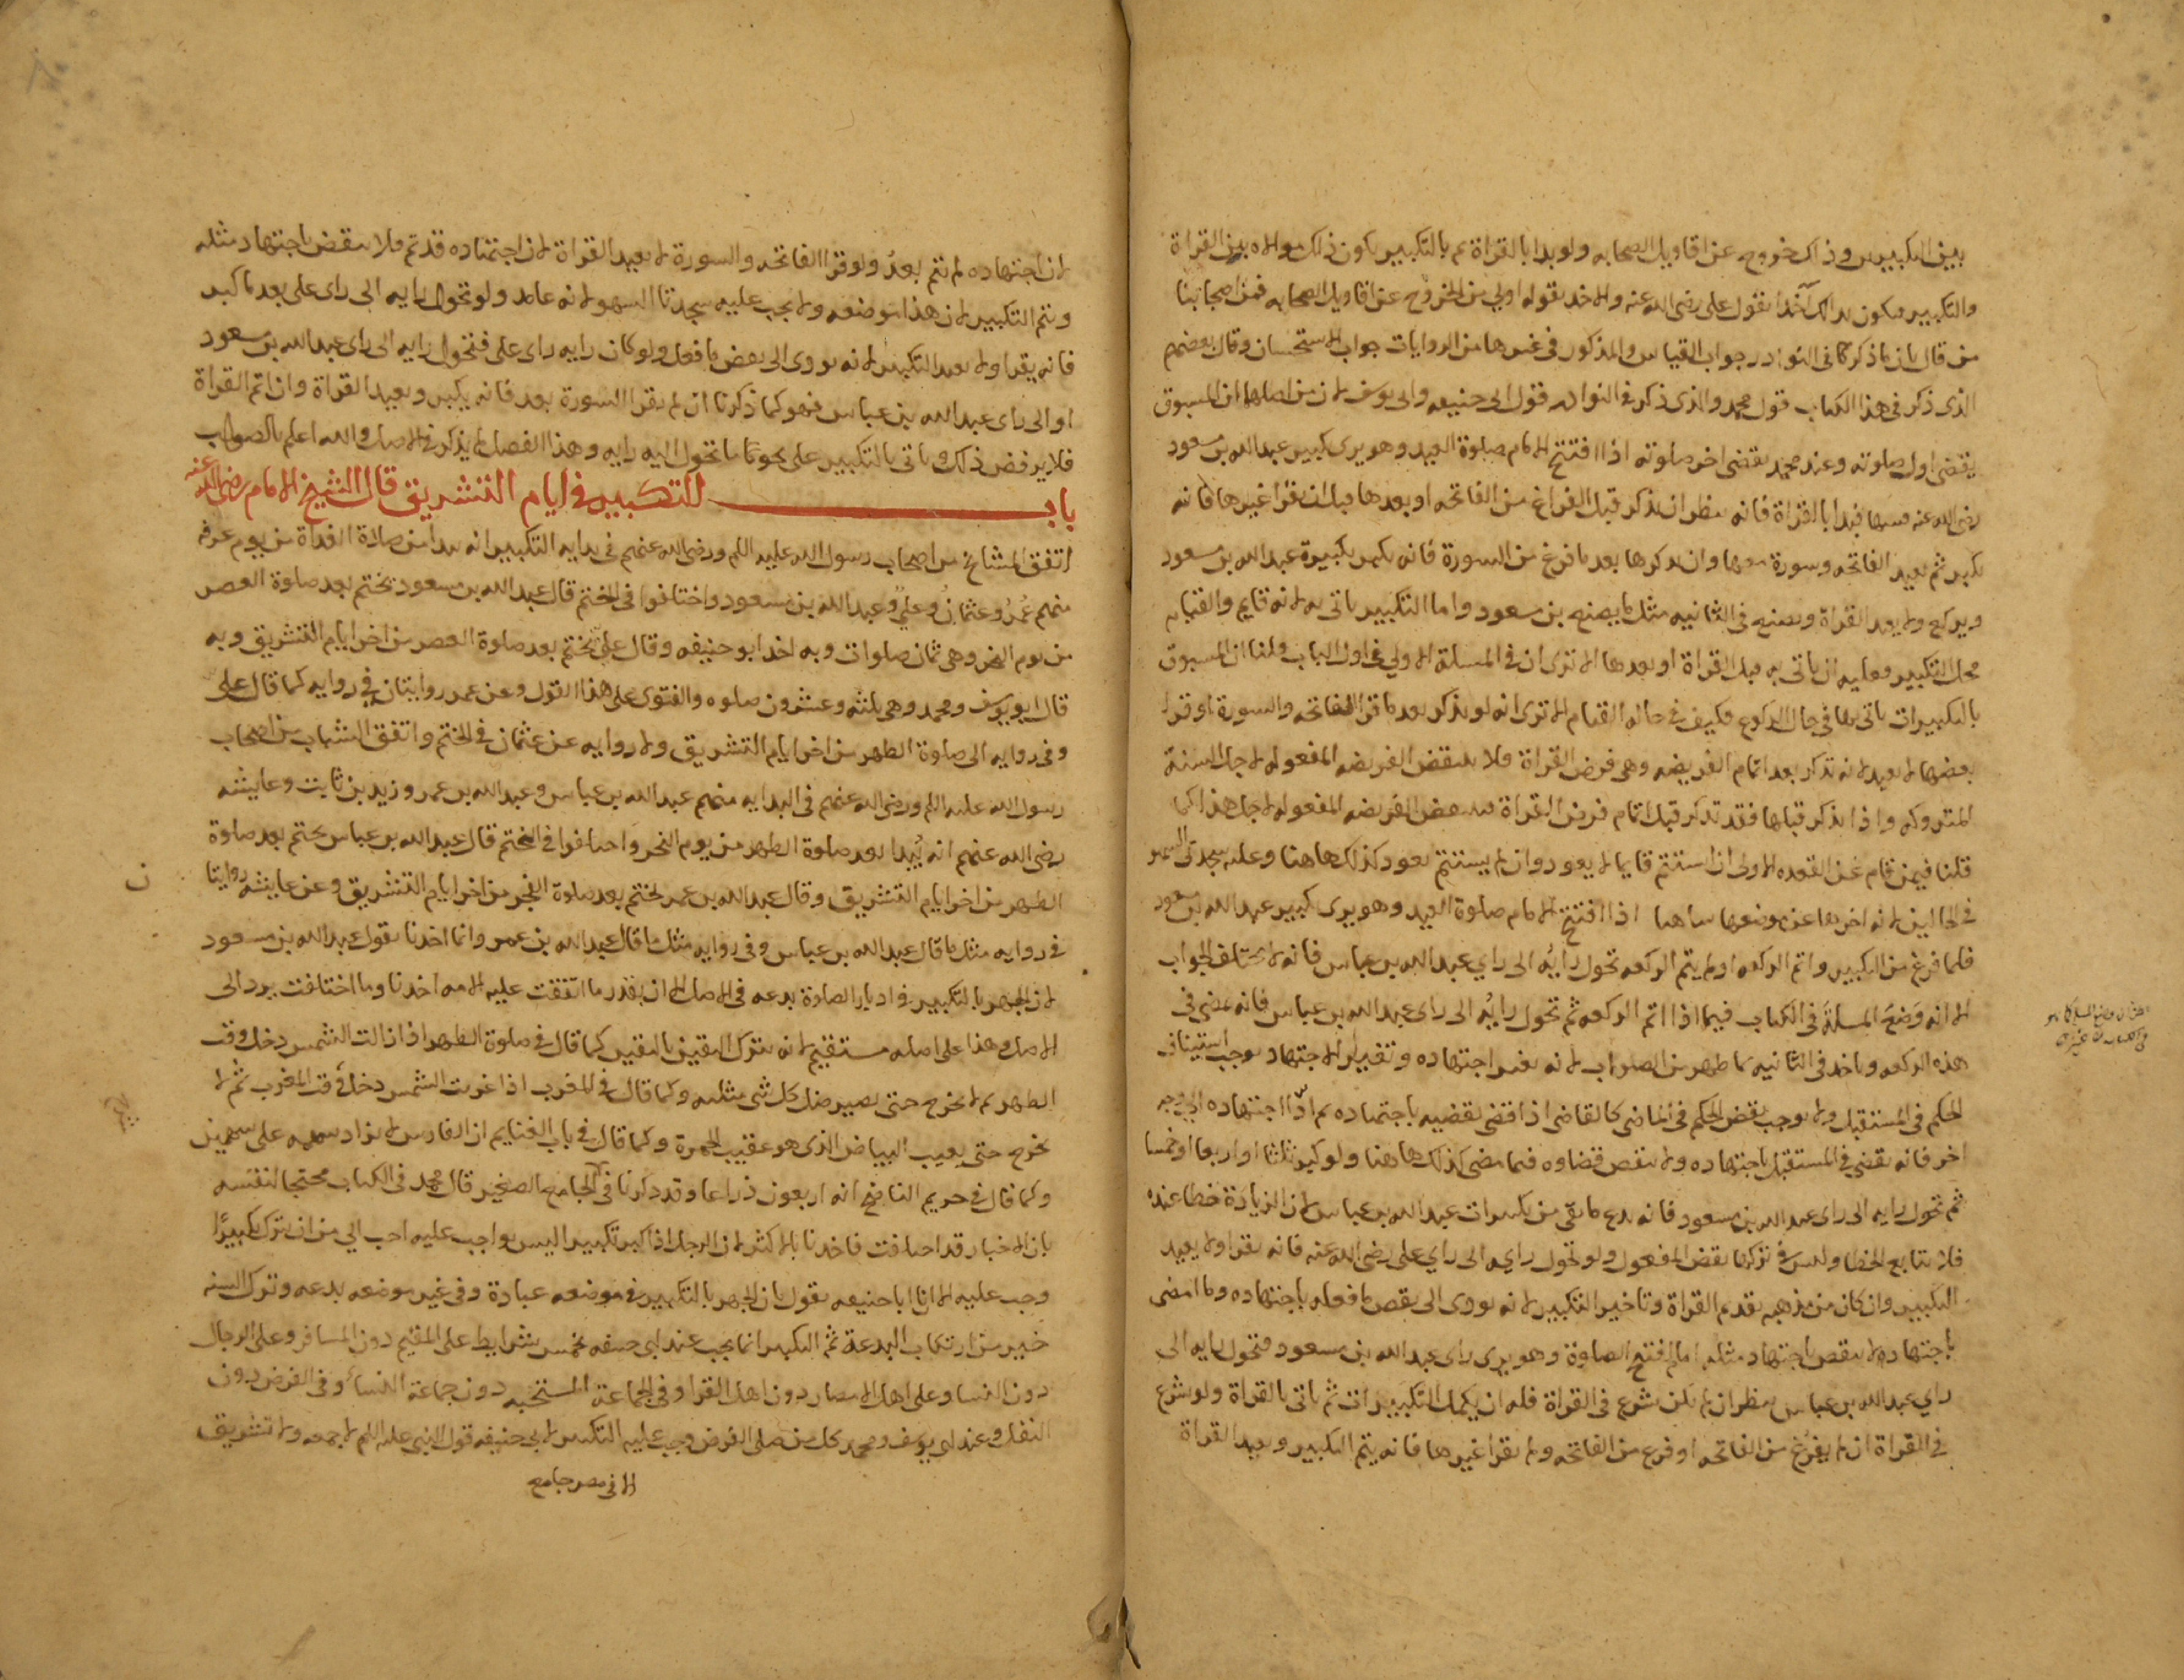 بين التكبيرين وذاك خروج عن اقاويل الصحابه ولو بدا بالقراة ثم بالتكبير يكون ذلك موالاه بين القراة
والتكبير فيكون بذلك آخذا بقول علي رضى الله عنه والاخذ بقوله اولي من الخروج عن اقاويل الصحابه فمن اصحابنا
من قال بان ما ذكر كما فى النوادر جواب القياس والمذكور فى غيرها من الروايات جواب الاستحسان وقال بعضهم
الذى ذكر فى هذا الكتاب قول محمد والذى ذكر فى النوادر قول ابى حنيفه وابى يوسف لان من اصلهما ان المسبوق
يقضى اول صلوته وعند محمد يقضى اخر صلوته اذا افتتح الامام صلوة العيد وهو يرى تكبير عبد الله بن مسعود
رضى الله عنه فسها فبدا بالقراة فانه ينظر ان يذكر قبل الفراغ من الفاتحه او بعدها قبل ان يقرا غيرها فانه
يكبر ثم يعيد الفاتحه وسورة معها وان يذكرها بعد ما فرغ من السورة فانه يكبر تكبيرة عبد الله بن مسعود
ويركع ولا يعيد القراة ويصنع فى الثانيه مثل ما يصنع بن مسعود واما التكبير ياتى به لانه قايم والقيام
محل التكبير وعليه ان ياتى به قبل القراة او بعدها الا ترى ان فى المسلة الاولي فى اول الباب قلنا ان المسبوق
بالتكبيرات ياتى بها فى حال الركوع فكيف فى حاله القيام الا ترى انه لو يذكر بعد ما قرا الفاتحه والسورة او قرا
بعضها لا يعيد لانه تذكر بعد اتمام الفريضه وهى فرض القراة فلا ينتقض الفريضه المفعوله لاجل السنة
المتروكه واذا يذكر قبلها فقد تذكر قبل اتمام فرض القراة فينتقض الفريضه المفعوله لاجل هذا كما
قلنا فيمن قام عن القعده الاولى ان استتم قايما لا يعود وان لم يستتم يعود كذلك هاهنا وعليه سجدتى السهو
فى الحالين لانه اخرها عن موضعها ساهيا اذا افتتح الامام صلوة العيد وهو يرى تكبير عبد الله بن مسعود
فلما فرغ من التكبير واتم الركعه او لم يتم الركعه تحول رايه الى راي عبد الله بن عباس فانه لا يختلف الجواب
الا انه وضع المسلة فى الكتاب فيما اذا اتم الركعه ثم تحول رايه الى راى عبد الله بن عباس فانه يمضى فى
هذه الركعه وياخذ فى الثانيه بما ظهر من الصواب لانه تغير اجتهاده وتغير الاجتهاد يوجب استيناف
الحكم فى المستقبل ولا يوجب نقض الحكم فى الماضى كالقاضى اذا قضى بقضيه باجتهاده ثم ادا اجتهاده الى وجه
اخر فانه يقضى فى المستقبل باجتهاده ولا ينقض قضاوه فيما مضى كذلك هاهنا ولو كبر ثلثا او اربعا او خمسا
ثم تحول رايه الى راى عبد الله بن مسعود فانه يدع ما بقى من تكبيرات عبد الله بن عباس لان الزيادة خطا عنده
فلا يتابع الخطا وليس فى تركها نقض المفعول ولو تحول رايه الى راي على رضى الله عنه فانه يقرا ولا يعيد
التكبير وان كان من مذهبه تقديم القراة وتاخير التكبير لانه يودى الى نقض ما فعله باجتهاده وما امضى
باجتهاده لا ينقض باجتهاد مثله اما لو افتتح الصلوة وهو يرى راى عبد الله بن مسعود فتحول رايه الى
راي عبد الله بن عباس ينظر ان لم يكن شرع فى القراة فله ان يكمل التكبيرات ثم ياتى بالقراة ولو شرع
فى القراة ان لم يفرغ من الفاتحه او فرغ من الفاتحه ولم يقرا غيرها فانه يتم التكبير ويعيد القراة
لان اجتهاده لم يتم بعد ولو قرا الفاتحه والسورة لا يعيد القراة لان اجتهاده قد تم فلا ينقض باجتهاد مثله
ويتم التكبير لان هذا موضعه ولا يجب عليه سجدتا السهو لانه عامد ولو تحول رايه الى راى على بعد ما كبر
فانه يقرا ولا يعيد التكبير لانه يودى الى نقض ما فعل ولو كان رايه راى على فتحول رايه الى راى عبد الله بن مسعود
او الى راى عبد الله بن عباس فهو كما ذكرنا ان لم يقرا السورة بعد فانه يكبر ويعيد القراة وان اتم القراة
فلا يرفض ذلك وياتى بالتكبير على نحو ما تحول اليه رايه وهذا الفصل لم يذكر فى الاصل والله اعلم بالصواب
باب التكبير فى ايام التشريق قال الشيخ الامام رضى الله عنه
اتفق المشايخ من اصحاب رسول الله عليه السلم ورضى الله عنهم فى بدايه التكبير انه يبدا من صلاة الغداة من يوم عرفه
منهم عمر وعثمان وعلي وعبد الله بن مسعود واختلفوا فى الختم قال عبد الله بن مسعود يختم بعد صلوة العصر
من يوم النحر وهى ثمان صلوات وبه اخذ ابو حنيفه وقال علي يختم بعد صلوة العصر من اخر ايام التشريق وبه
قال ابو يوسف ومحمد وهى ثلثه وعشرون صلوه والفتوى على هذا القول وعن عمر روايتان فى روايه كما قال على
وفى روايه الى صلوة الظهر من اخر ايام التشريق ولا روايه عن عثمان فى الختم واتفق الشباب من اصحاب
رسول الله عليه السلم ورضى الله عنهم فى البدايه منهم عبد الله بن عباس وعبد الله بن عمر وزيد بن ثابت وعايشه
رضى الله عنهم انه يبدا بعد صلوة الظهر من يوم النحر واختلفوا فى الختم قال عبد الله بن عباس يختم بعد صلوة
الظهر من اخر ايام التشريق وقال عبد الله بن عمر يختم بعد صلوة الفجر من اخر ايام التشريق وعن عايشه روايتا
ن
فى روايه مثل ما قال عبد الله بن عباس وفى روايه مثل ما قال عبد الله بن عمر وانما اخذنا بقول عبد الله بن مسعود
لان الجهر بالتكبير فى ادبار الصلوة بدعه فى الاصل الا ان بقدر ما اتفقت عليه الامه اخذنا وما اختلفت يرد الى
الاصل وهذا على اصله مستقيم لانه يترك اليقين باليقين كما قال فى صلوة الظهر اذا زالت الشمس دخل وقت
الظهر ثم لا يخرج حتى يصير ظل كل شى مثليه وكما قال فى المغرب اذا غربت الشمس دخل وقت المغرب ثم لا
يخرج حتى يغيب البياض الذى هو عقيب الحمرة وكما قال فى باب الغنايم ان الفارس لا يزاد سهمه على سهمين
وكما قال فى حريم الناضح انه اربعون ذراعا وقد ذكرنا فى الجامع الصغير قال محمد فى الكتاب محتجا لنفسه
بان الاخبار قد اختلفت فاخذنا بالاكثر لان الرجل اذا كبر تكبيرا ليس بواجب عليه احب الي من ان يترك تكبيرًا
وجب عليه الا ان ابا حنيفه يقول بان الجهر بالتكبير فى موضعه عبادة وفى غير موضعه بدعه وترك السنه
خير من ارتكاب البدعة ثم التكبير انما يجب عند ابى حنيفه بخمس شرايط على المقيم دون المسافر وعلى الرجال
دون النسا وعلى اهل الامصار دون اهل القرا وفى الجماعة المستحبه دون جماعة النساء وفى الفرض دون
النفل وعند ابى يوسف ومحمد كل من صلى الفرض وجب عليه التكبير لابى حنيفه قول النبى عليه السلم لا جمعه ولا تشريق
الا فى مصر جامع